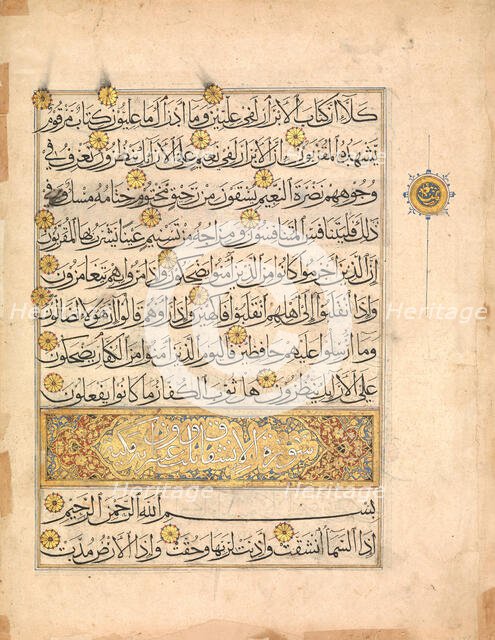 كلا إن كتاب الأبرار لفي عليين وما أدراك ما عليون كتاب مرقوم
يشهده المقربون إن الأبرار لفي نعيم على الأرائك ينظرون تعرف في
وجوههم نضرة النعيم يسقون من رحيق مختوم ختامه مسك وفي
ذلك فليتنافس المتنافسون ومزاجه من تسنيم عينا يشرب بها المقربون
إن الذين أجرموا كانوا من الذين آمنوا يضحكون وإذا مروا بهم يتغامزون
وإذا انقلبوا إلى أهلهم انقلبوا فاكهين وإذا رأوهم قالوا إن هؤلاء لضالون
وما أرسلوا عليهم حافظين فاليوم الذين آمنوا من الكفار يضحكون
على الأرائك ينظرون هل ثوب الكفار ما كانوا يفعلون
سورة الانشقاق
بسم الله الرحمن الرحيم
إذا السماء انشقت وأذنت لربها وحقت وإذا الأرض مدت
©
Heritage
Heritage
Heritage
Heritage